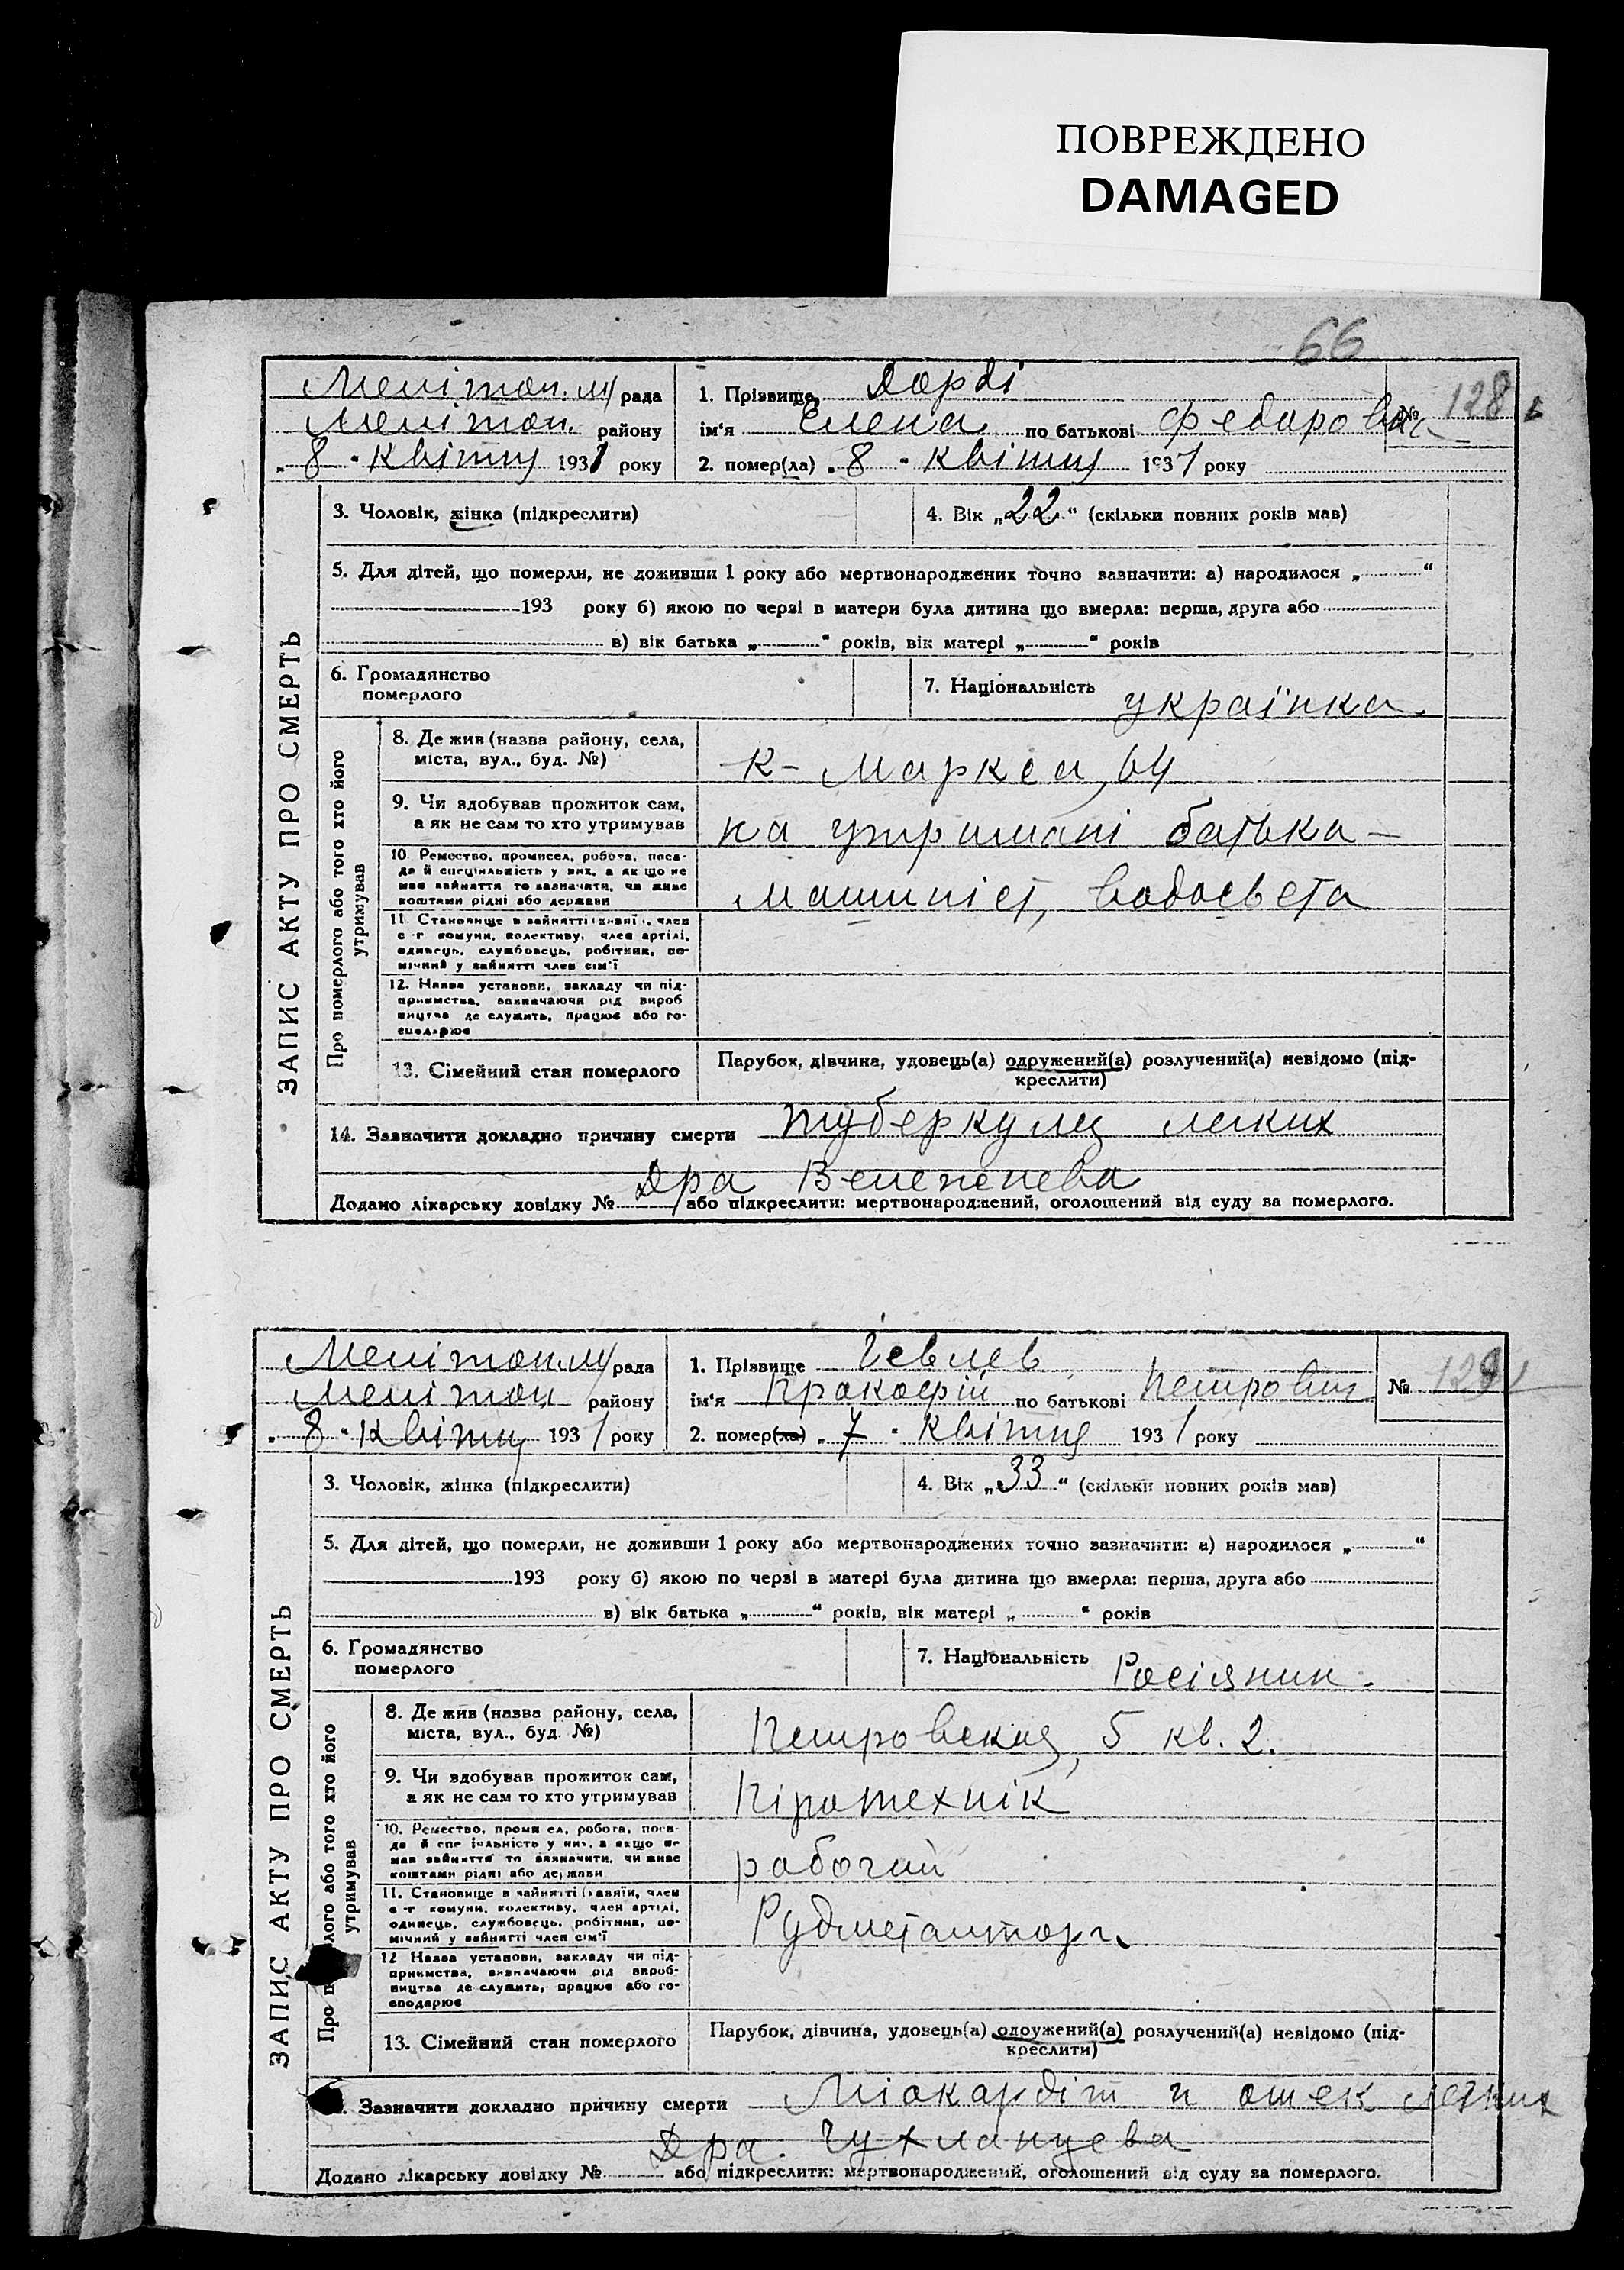 ПОВРЕЖДЕНО
DAMAGED
66
Меліто́п. м/ рада
Меліто́п. району
„ 8 " Квітня 1931 року
1. Прізвище Дорді
ім'я Елена по батькові Федоровна
№ 128
2. помер(ла) „ 8 " Квітня 1931 року
ЗАПИС АКТУ ПРО СМЕРТЬ
3. Чоловік, жінка (підкреслити)
4. Вік „ 22 “ (скільки повних років мав)
5. Для дітей, що померли, не доживши 1 року або мертвонароджених точно зазначити: а) народилося „ “
193 року б) якою по черзі в матери була дитина що вмерла: перша, друга або
в) вік батька „ “ років, вік матері „ “ років
6. Громадянство
померлого
7. Національність українка.
Про померлого або того хто його
утримував
8. Де жив (назва району, села,
міста, вул., буд. №)
К-Маркса, 64
9. Чи здобував прожиток сам,
а як не сам то хто утримував
на утримані батька –
10. Ремество, промисел, робота, поса-
да й спеціяльність у них, а як що не
мав зайняття то зазначити, чи живе
коштами рідні або держави
машиніст, водосвета
11. Становище в зайнятті (хазяїн, член
с-г комуни, колективу, член артілі,
одинець, службовець, робітник, по-
мічний у зайнятті член сім'ї
12. Назва установи, закладу чи під-
приємства, зазначаючи рід вироб
ництва де служить, працює або го-
сподарює
13. Сімейний стан померлого
Парубок, дівчина, удовець(а) одружений(а) розлучений(а) невідомо (під-
креслити)
14. Зазначити докладно причину смерти туберкулц легких
Дра
Додано лікарську довідку № або підкреслити: мертвонароджений, оголошений від суду за померлого.
Мелітоп. м/ рада
Мелітоп. району
„ 8 " Квітня 1931 року
1. Прізвище
ім'я Прокофій по батькові Петрович
№ 129
2. помер(ла) „ 7 " Квітня 1931 року
ЗАПИС АКТУ ПРО СМЕРТЬ
3. Чоловік, жінка (підкреслити)
4. Вік „ 33 “ (скільки повних років мав)
5. Для дітей, що померли, не доживши 1 року або мертвонароджених точно зазначити: а) народилося „ “
193 року б) якою по черзі в матері була дитина що вмерла: перша, друга або
в) вік батька „ “ років, вік матері „ “ років
6. Громадянство
померлого
7. Національність Росіянин.
Про п лого або того хто його
утримував
8. Де жив (назва району, села,
міста, вул., буд. №)
Петровская, 5 кв. 2.
9. Чи здобував прожиток сам,
а як не сам то хто утримував
Піротехнік
10. Ремество, промисел, робота, поса-
да й спеціяльність у них, а якщо не
мав зайняття то зазначити, чи живе
коштами рідні або держави
рабочий
11. Становище в зайнятті (хазяїн, член
с-г комуни, колективу, член артілі,
одинець, службовець, робітник, по-
мічний у зайнятті член сім'ї
Рудметалторг.
12 Назва установи, закладу чи під-
приємства, зазначаючи рід вироб-
ництва де служить, працює або го-
сподарює
13. Сімейний стан померлого
Парубок, дівчина, удовець(а) одружений(а) розлучений(а) невідомо (під-
креслити)
Зазначити докладно причину смерти Міокардіт и отек легких
Дра. Чухланцева
Додано лікарську довідку № або підкреслити: мертвонароджений, оголошений від суду за померлого.